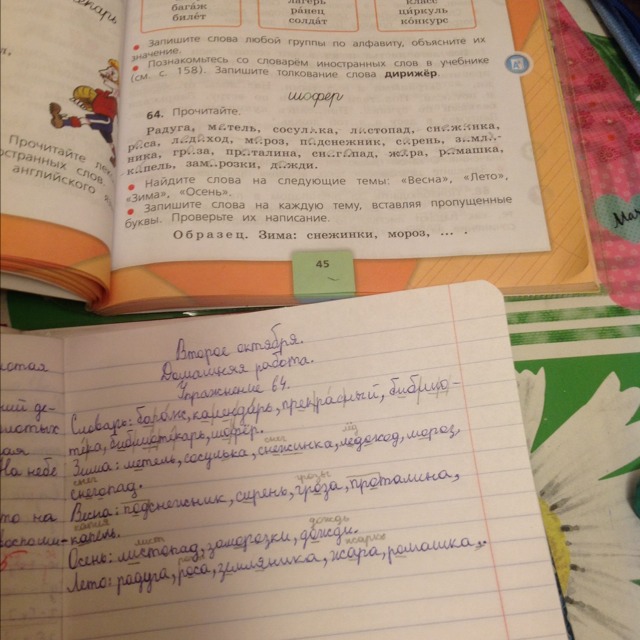 багаж
билет
лагерь
ранец
солдат
класс
циркуль
конкурс
• Запишите слова любой группы по алфавиту, объясните их
значение.
• Познакомьтесь со словарём иностранных слов в учебнике
(см. с. 158). Запишите толкование слова дирижёр.
шофёр
64. Прочитайте.
Радуга, м.тель, сосул.ка, л.стопад, сн.жинка,
р.са, л.д.ход, м.роз, п.дснежник, с.рень, з.мл.-
ника, гр.за, пр.талина, сн.г.пад, ж.ра, р.машка,
капель, зам.розки, д.жди.
• Найдите слова на следующие темы: «Весна», «Лето»,
«Зима», «Осень».
• Запишите слова на каждую тему, вставляя пропущенные
буквы. Проверьте их написание.
Образец. Зима: снежинки, мороз, ... .
45
Прочитайте
английского
Второе октября.
Домашняя работа.
Упражнение 64.
Словарь: багаж, календарь, прекрасный, библио-
тека, библиотекарь, шофёр.
снег лёд
Зима: метель, сосулька, снежинка, ледоход, мороз,
снег
снегопад.
грозы
Весна: подснежник, сирень, гроза, проталина,
капель.
лист дождь
Осень: листопад, заморозки, дожди.
жарко
Лето: радуга, роса, земляника, жара, ромашка.
ний де-
На небе
то на